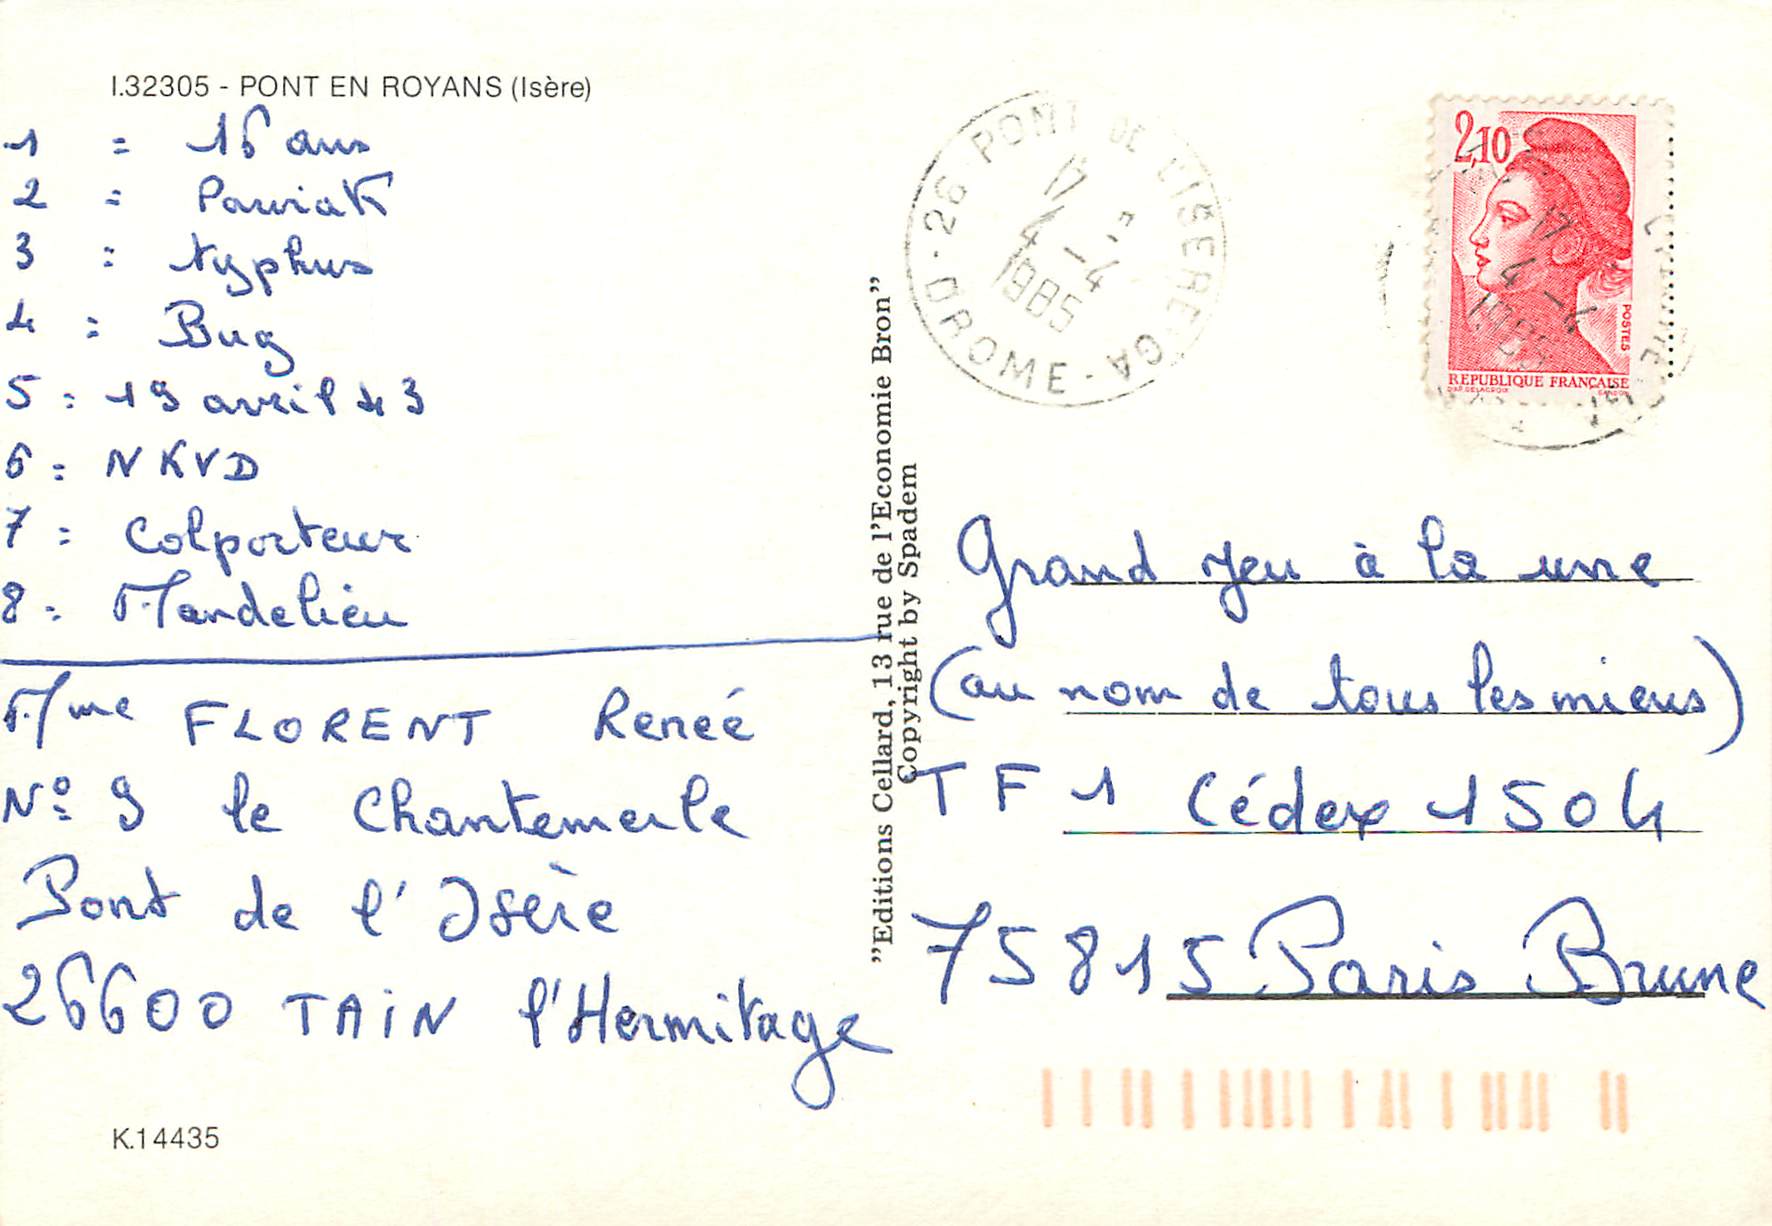 I.32305 - PONT EN ROYANS (Isère)
1 = 16 ans
2 = Pawiak
3 : typhus
4 = Bug
5 : 19 avril 43
6 : NKVD
7 : Colporteur
8 : Mandelieu
Mme FLORENT Reneé
N° 9 le Chantemerle
Pont de l'Isère
26600 TAiN l'Hermitage
K.14435
"Editions Cellard, 13 rue de l'Economie Bron"
Copyright by Spadem
26 PONT DE L'ISERE-GA - DROME -
17
4 - 4
1985
2,10
17
4 - 4
POSTES
REPUBLIQUE FRANÇAISE
Grand jeu à la une
(au nom de tous les miens)
TF1 Cédex 1504
75815 Paris Brune